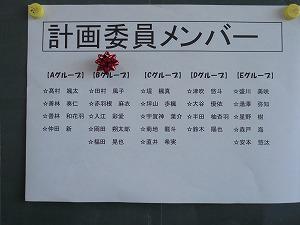 計画委員メンバー
【Aグループ】 【Bグループ】 【Cグループ】 【Dグループ】 【Eグループ】
☆高村 颯太 ☆田村 風子 ☆堤 楓真 ☆津吹 悠斗 ☆盛川 美咲
☆善林 奏仁 ☆赤羽根 麻衣 ☆坪山 歩楓 ☆大谷 優依 ☆湯澤 弥知
☆善林 和花羽 ☆入江 彩愛 ☆宇賀神 葉介 ☆半田 柚杏羽 ☆星野 樹
☆仲田 新 ☆岡田 朔太郎 ☆菊地 龍斗 ☆鈴木 陽也 ☆森戸 海
☆福田 晃也 ☆直井 希実 ☆安本 悠汰